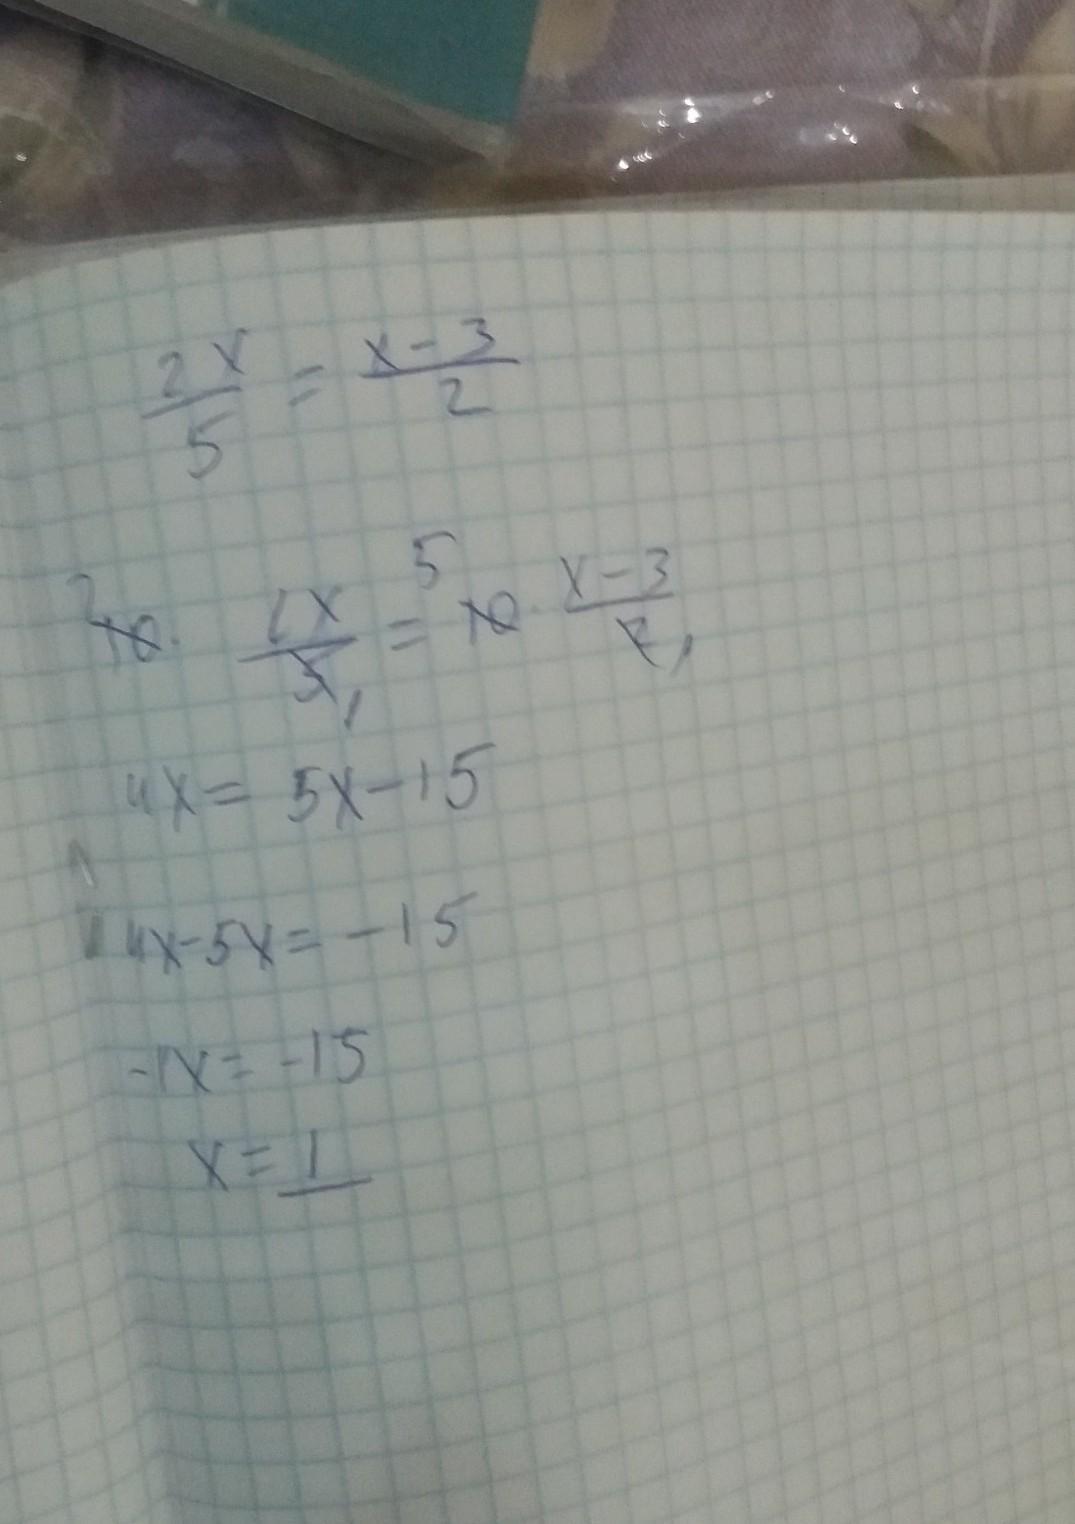 2x/5 = x-3/2
2 10 · 2x/5 1 = 5 10 · x-3/2 1
4x = 5x-15
4x-5x = -15
-1x = -15
x = 1